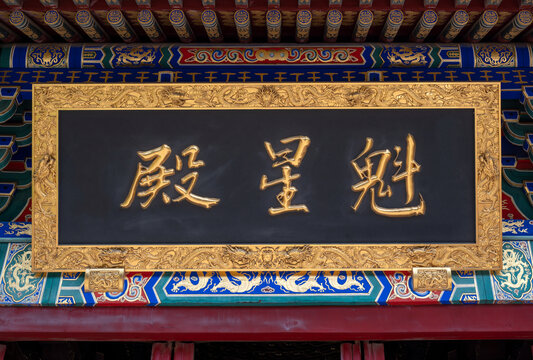 魁星殿